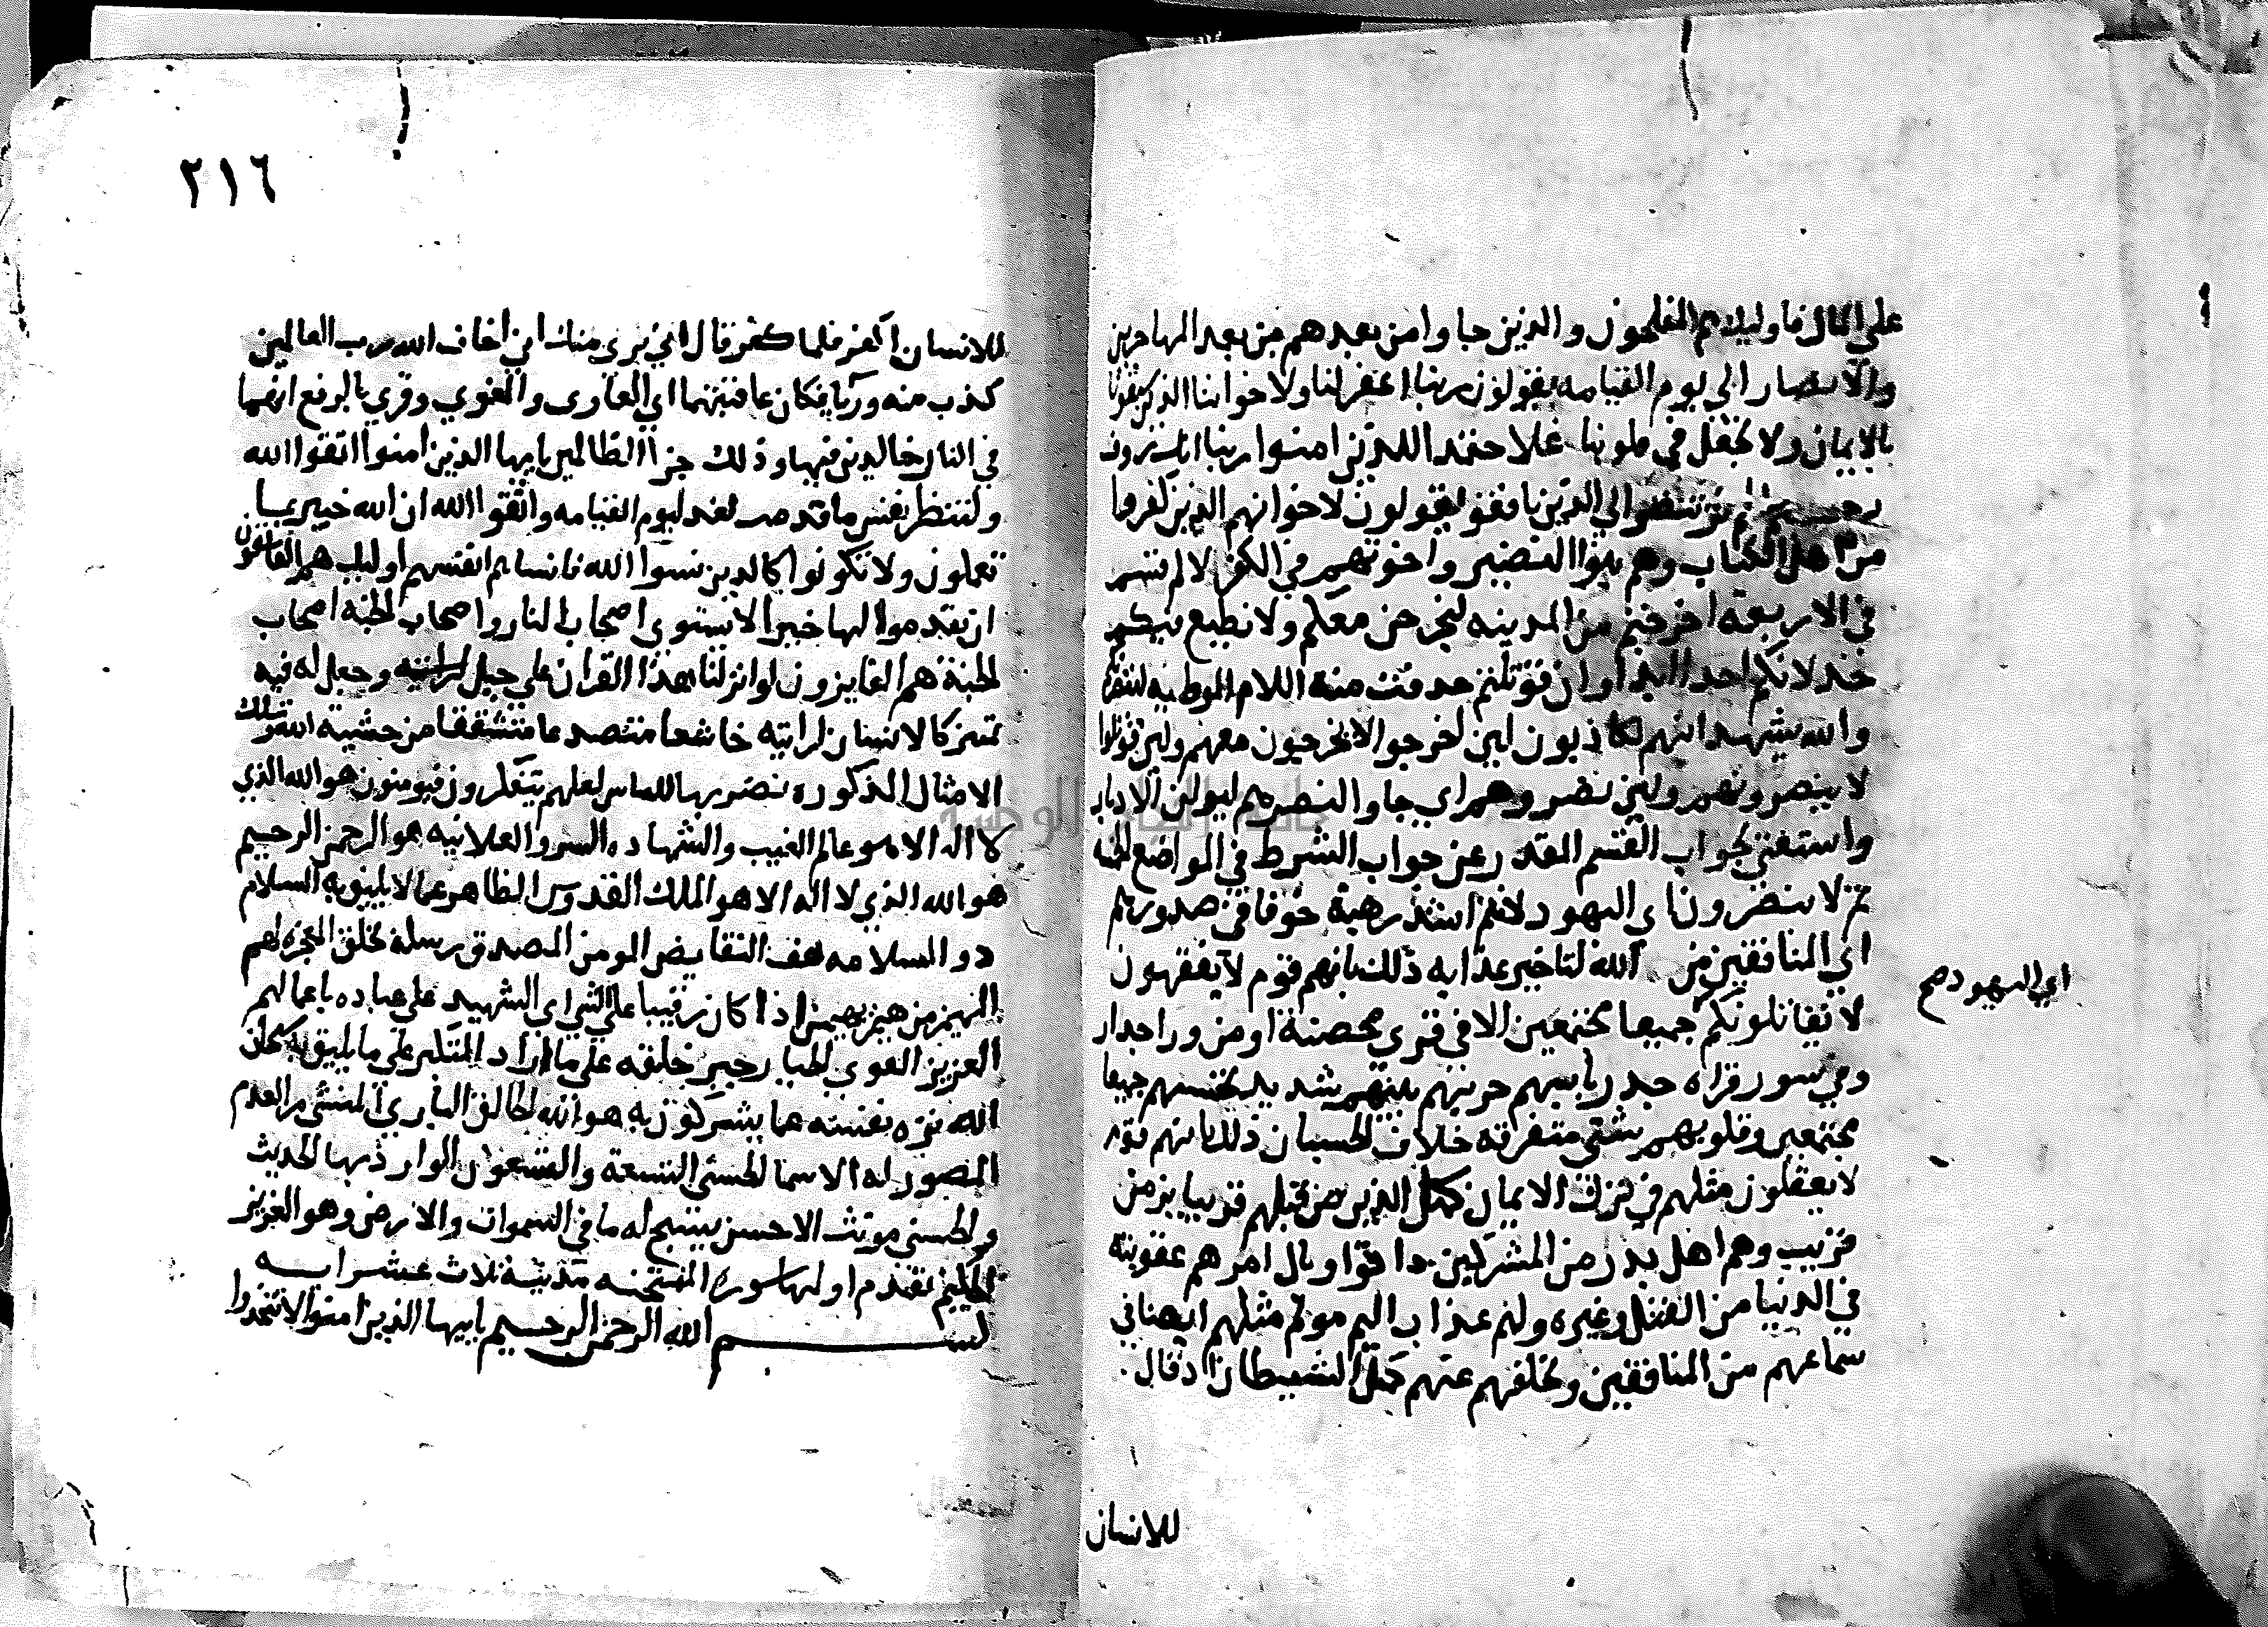 على المال فاوليك هم المفلحون والذين جاوا من بعدهم من بعد المهاجرين
والانصار الي يوم القيامه يقولون ربنا اغفر لنا ولاخواننا الذين سبقونا
بالايمان ولا تجعل في قلوبنا غلا حقدا للذين امنوا ربنا انك روف
رحيم الم تر تنظر الي الذين نافقوا يقولون لاخوانهم الذين كفروا
من اهل الكتاب وهم بنوا النضير واخوتهم في الكفر لان لام قسم
في الاربعة اخرجتم من المدينه لنخرجن معكم ولا نطيع فيكم
خذلانكم احدا ابدا وان قوتلتم حذفت منه اللام الموطيه لننصرنكم
والله يشهد انهم لكاذبون لين اخرجوا لا يخرجون معهم ولين قوتلوا
لا ينصرونهم ولين نصروهم اي جاوا لنصرهم ليولن الادبار
واستغني بجواب القسم المقدر عن جواب الشرط في المواضع الخمسة
ثم لا ينصرون اي اليهود لانتم اشد رهبة خوفا في صدورهم
اي المنافقين من الله لتاخير عذابه ذلك بانهم قوم لا يفقهون
اي اليهود صح
لا يقاتلونكم جميعا مجتمعين الا في قري محصنة او من ورا جدار
وفي سور قراه جدر باسهم حربهم بينهم شديد تحسبهم جميعا
مجتمعين وقلوبهم شتي متفرقه خلاف الحسبان ذلك بانهم قوم
لا يعقلون مثلهم في ترك الايمان كمثل الذين من قبلهم قريبا بزمن
قريب وهم اهل بدر من المشركين ذاقوا وبال امرهم عقوبته
في الدنيا من القتل وغيره ولهم عذاب اليم مولم مثلهم ايضا في
سماعهم من المنافقين وتخلفهم عنهم كمثل الشيطان اذ قال
للانسان
٢١٦
للانسان اكفر فلما كفر قال اني بري منك اني اخاف الله رب العالمين
كذب منه وريا فكان عاقبتهما اي الغاوي والمغوي وقري بالرفع انهما
في النار خالدين فيها وذلك جزا الظالمين يايها الذين امنوا اتقوا الله
ولتنظر نفس ما قدمت لغد ليوم القيامه واتقوا الله ان الله خبير بما
تعملون ولا تكونوا كالذين نسوا الله فانساهم انفسهم اوليك هم الفاسقون
ان يقدموا لها خيرا لا يستوي اصحاب النار واصحاب الجنة اصحاب
الجنة هم الفايزون لو انزلنا هذا القران علي جبل لرايته وجعل له فيه
تميز كالانسان لرايته خاشعا متصدعا متشققا من خشية الله وتلك
الامثال المذكوره نضربها للناس لعلهم يتفكرون فيومنون هو الله الذي
لا اله الا هو عالم الغيب والشهاده السر والعلانيه هو الرحمن الرحيم
هو الله الذي لا اله الا هو الملك القدوس الطاهر عما لا يليق به السلام
ذو السلامه من النقايض المومن المصدق رسله بخلق المعجزه لهم
المهيمن من هيمن يهيمن اذا كان رقيبا علي الشي اي الشهيد على عباده باعمالهم
العزيز القوي الجبار جبر خلقه على ما اراد المتكبر على ما لا يليق به سبحان
الله نزه نفسه عما يشركون به هو الله الخالق الباري المنشي من العدم
المصور له الاسما الحسني التسعة والتسعون الوارد بها الحديث
والحسني مونث الاحسن يسبح له ما في السموات والارض وهو العزيز
الحكيم تقدم اولها سورة الممتحنه مدنية ثلاث عشر ايه
بسم الله الرحمن الرحيم يايها الذين امنوا لا تتخذوا